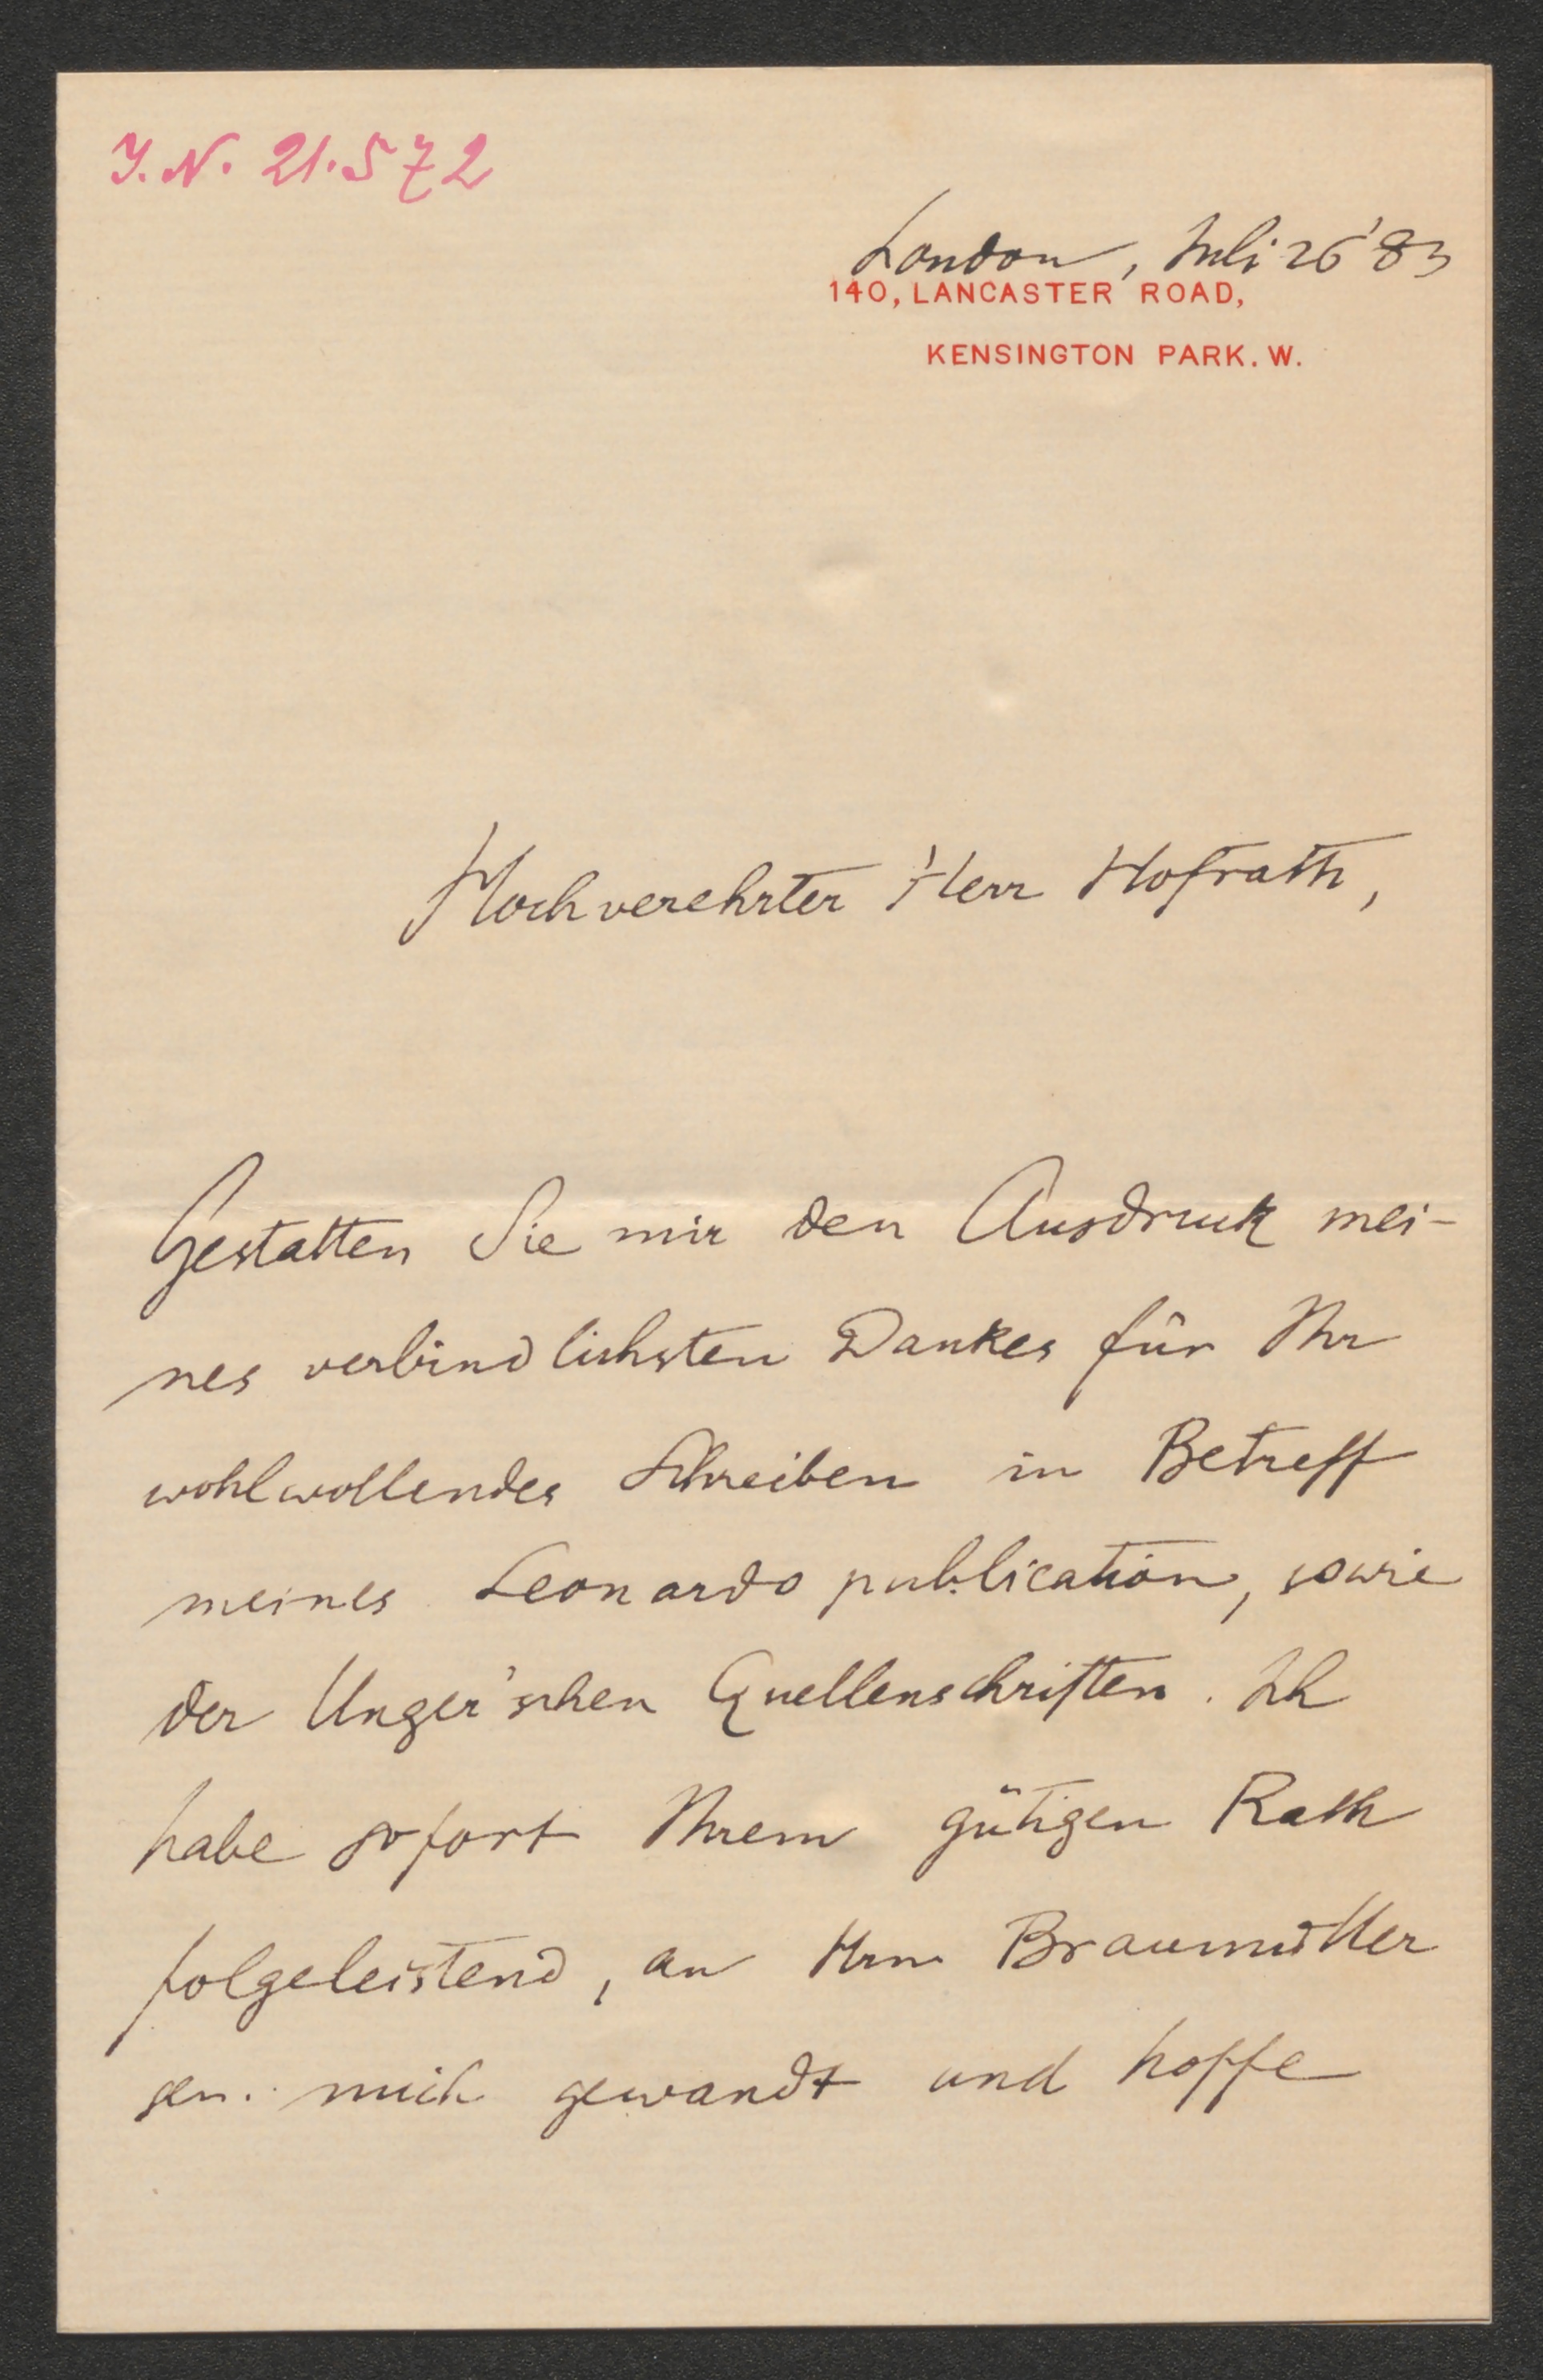 J. N. 21.572
London, Juli 26 '83
140, LANCASTER ROAD,
KENSINGTON PARK. W.
Hochverehrter Herr Hofrath,
Gestatten Sie mir den Ausdruck mei-
nes verbindlichsten Dankes für Ihr
wohlwollendes Schreiben in Betreff
meines Leonardo publication, sowie
der Unger'schen Quellenschriften. Ich
habe sofort Ihrem gütigen Rath
folgeleistend, an Hrn Braumüller
sen. mich gewandt und hoffe